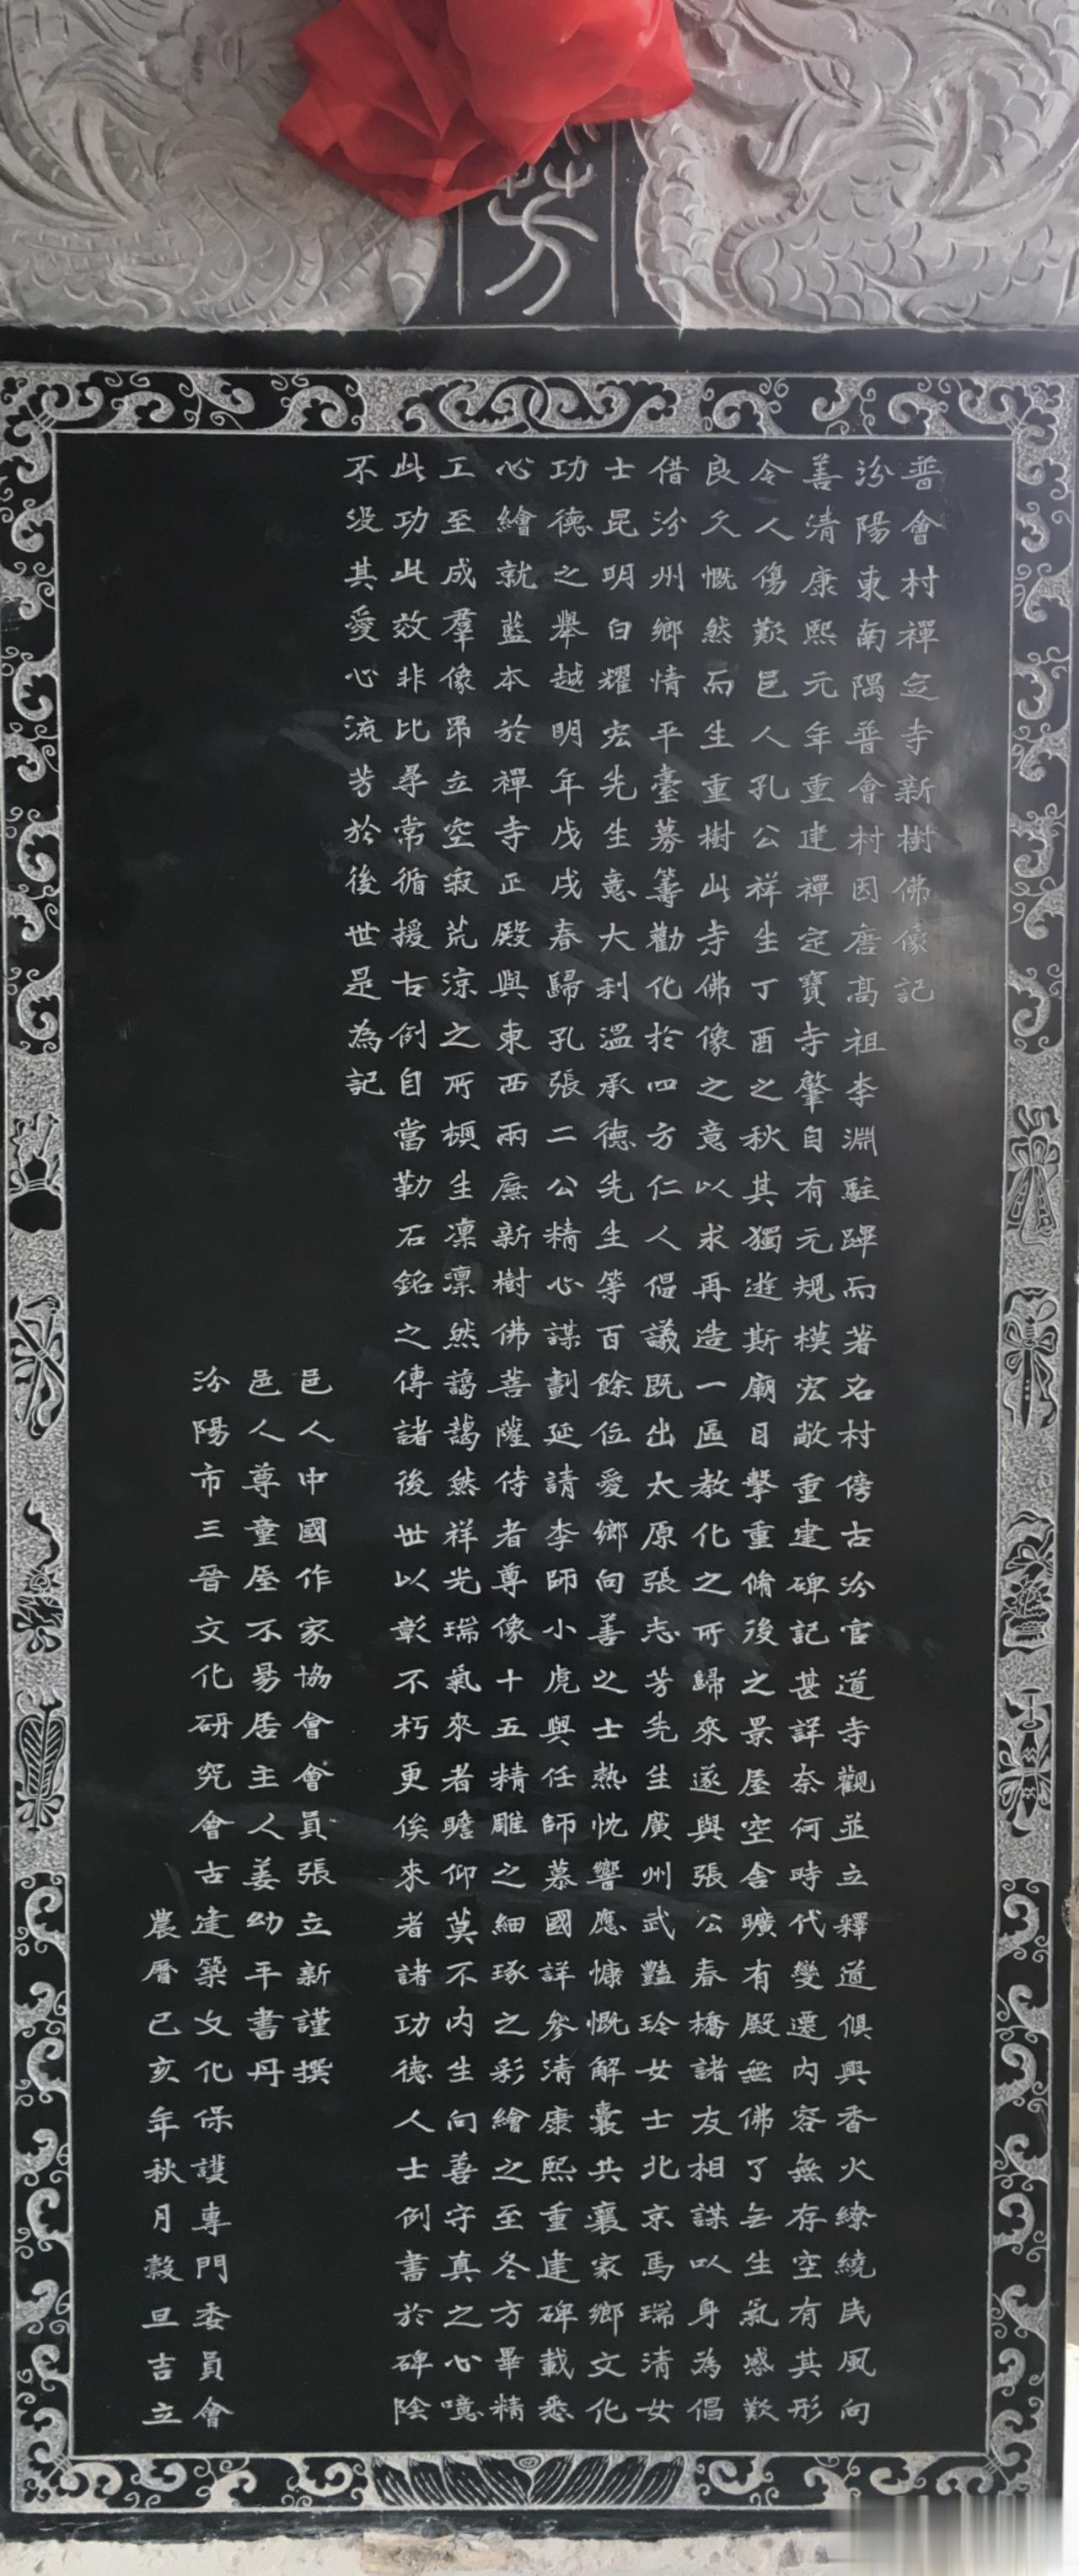 芳
普會村禪定寺新樹佛像記
汾陽東南隅普會村因唐高祖李淵駐蹕而著名村傍古汾官道寺觀並立釋道俱興香火繚繞民風向
善清康熙元年重建禪定寶寺肇自有元規模宏敞重建碑記甚詳奈何時代變遷內容無存空有其形
令人傷歎邑人孔公祥生丁酉之秋其獨遊斯廟目擊重脩後之景屋空舍曠有殿無佛了无生氣感歎
良久慨然而生重樹此寺佛像之意以求再造一區教化之所歸來遂與張公春橋諸友相謀以身為倡
借汾州鄉情平臺募籌勸化於四方仁人倡議既出太原張志芳先生廣州武豔玲女士北京馬瑞清女
士昆明白耀宏先生意大利溫承德先生等百餘位愛鄉向善之士熱忱響應慷慨解囊共襄家鄉文化
功德之舉越明年戊戌春歸孔張二公精心謀劃延請李師小虎與任師慕國詳參清康熙重建碑載悉
心繪就藍本於禪寺正殿與東西兩廡新樹佛菩薩侍者尊像十五精雕之細琢之彩繪之至冬方畢精
工至成羣像昂立空寂荒涼之所頓生凜凜然藹藹然祥光瑞氣來者瞻仰莫不內生向善守真之心噫
此功此效非比尋常循援古例自當勒石銘之傳諸後世以彰不朽更俟來者諸功德人士例書於碑陰
不沒其愛心流芳於後世是為記
邑人中國作家協會會員張立新謹撰
邑人尊童屋不易居主人姜幼平書丹
汾陽市三晉文化研究會古建築文化保護專門委員會
農曆己亥年秋月穀旦吉立